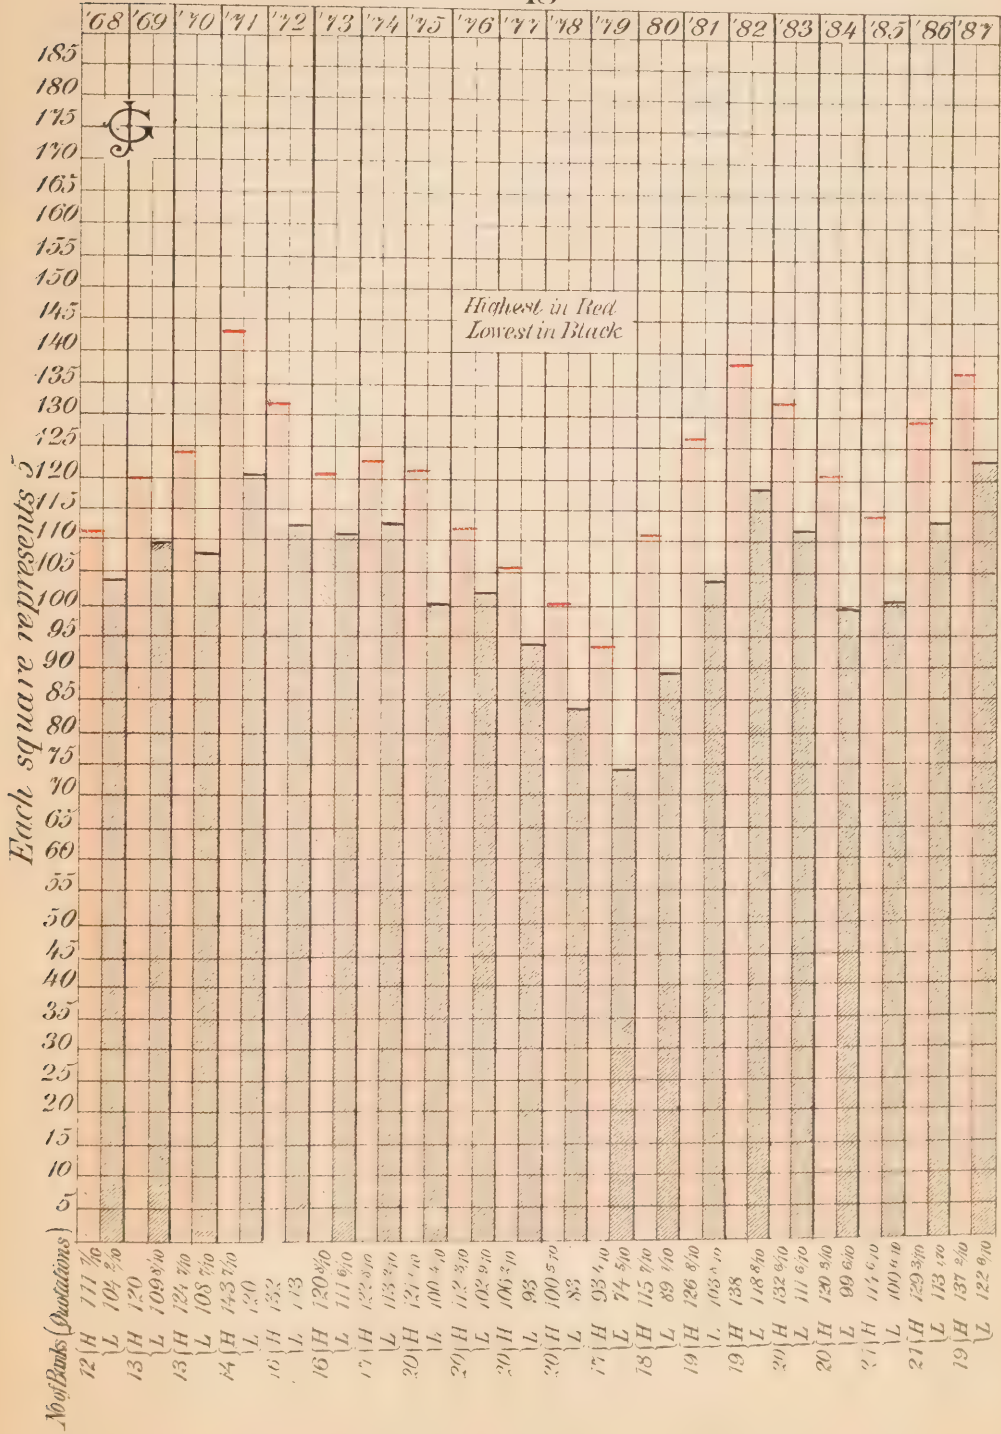 '68 '69 '70 '71 '72 '73 '74 '75 '76 '77 '78 '79 80 '81 '82 '83 '84 '85 '86 '87
185
180
175
170
165
160
155
150
145
140
135
130
125
120
115
110
105
100
95
90
85
80
75
70
65
60
55
50
45
40
35
30
25
20
15
10
5
Highest in Red
Lowest in Black
Each square represents 5
No of Banks (Quotations)
12 H 111 2/10
L 104 2/10
13 H 120
L 109 8/10
13 H 124 2/10
L 108 2/10
14 H 143 7/10
L 120
16 H 132
L 113
16 H 120 8/10
L 111 6/10
17 H
L 113 2/10
20 H
L
20 H 112 3/10
L 102 9/10
20 H 106 2/10
L 93
20 H 100 5/10
L 83
17 H 93 4/10
L 74 5/10
18 H 115 2/10
L 89
19 H 126 8/10
L 103
19 H 138
L 118 8/10
20 H 132 6/10
L 111 6/10
20 H 120 8/10
L 99 6/10
21 H 114 6/10
L 100 6/10
21 H 129 3/10
L 113
19 H 137 2/10
L 122 6/10